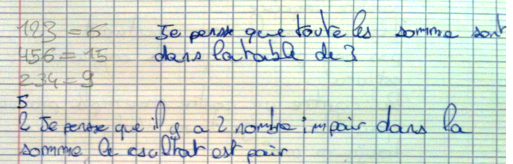 123 = 6 Je pense que toute les somme sont
456 = 15 dans la table de 3
234 = 9
5
2 Je pense que il y a 2 nombre impair dans la
somme le resultat est pair